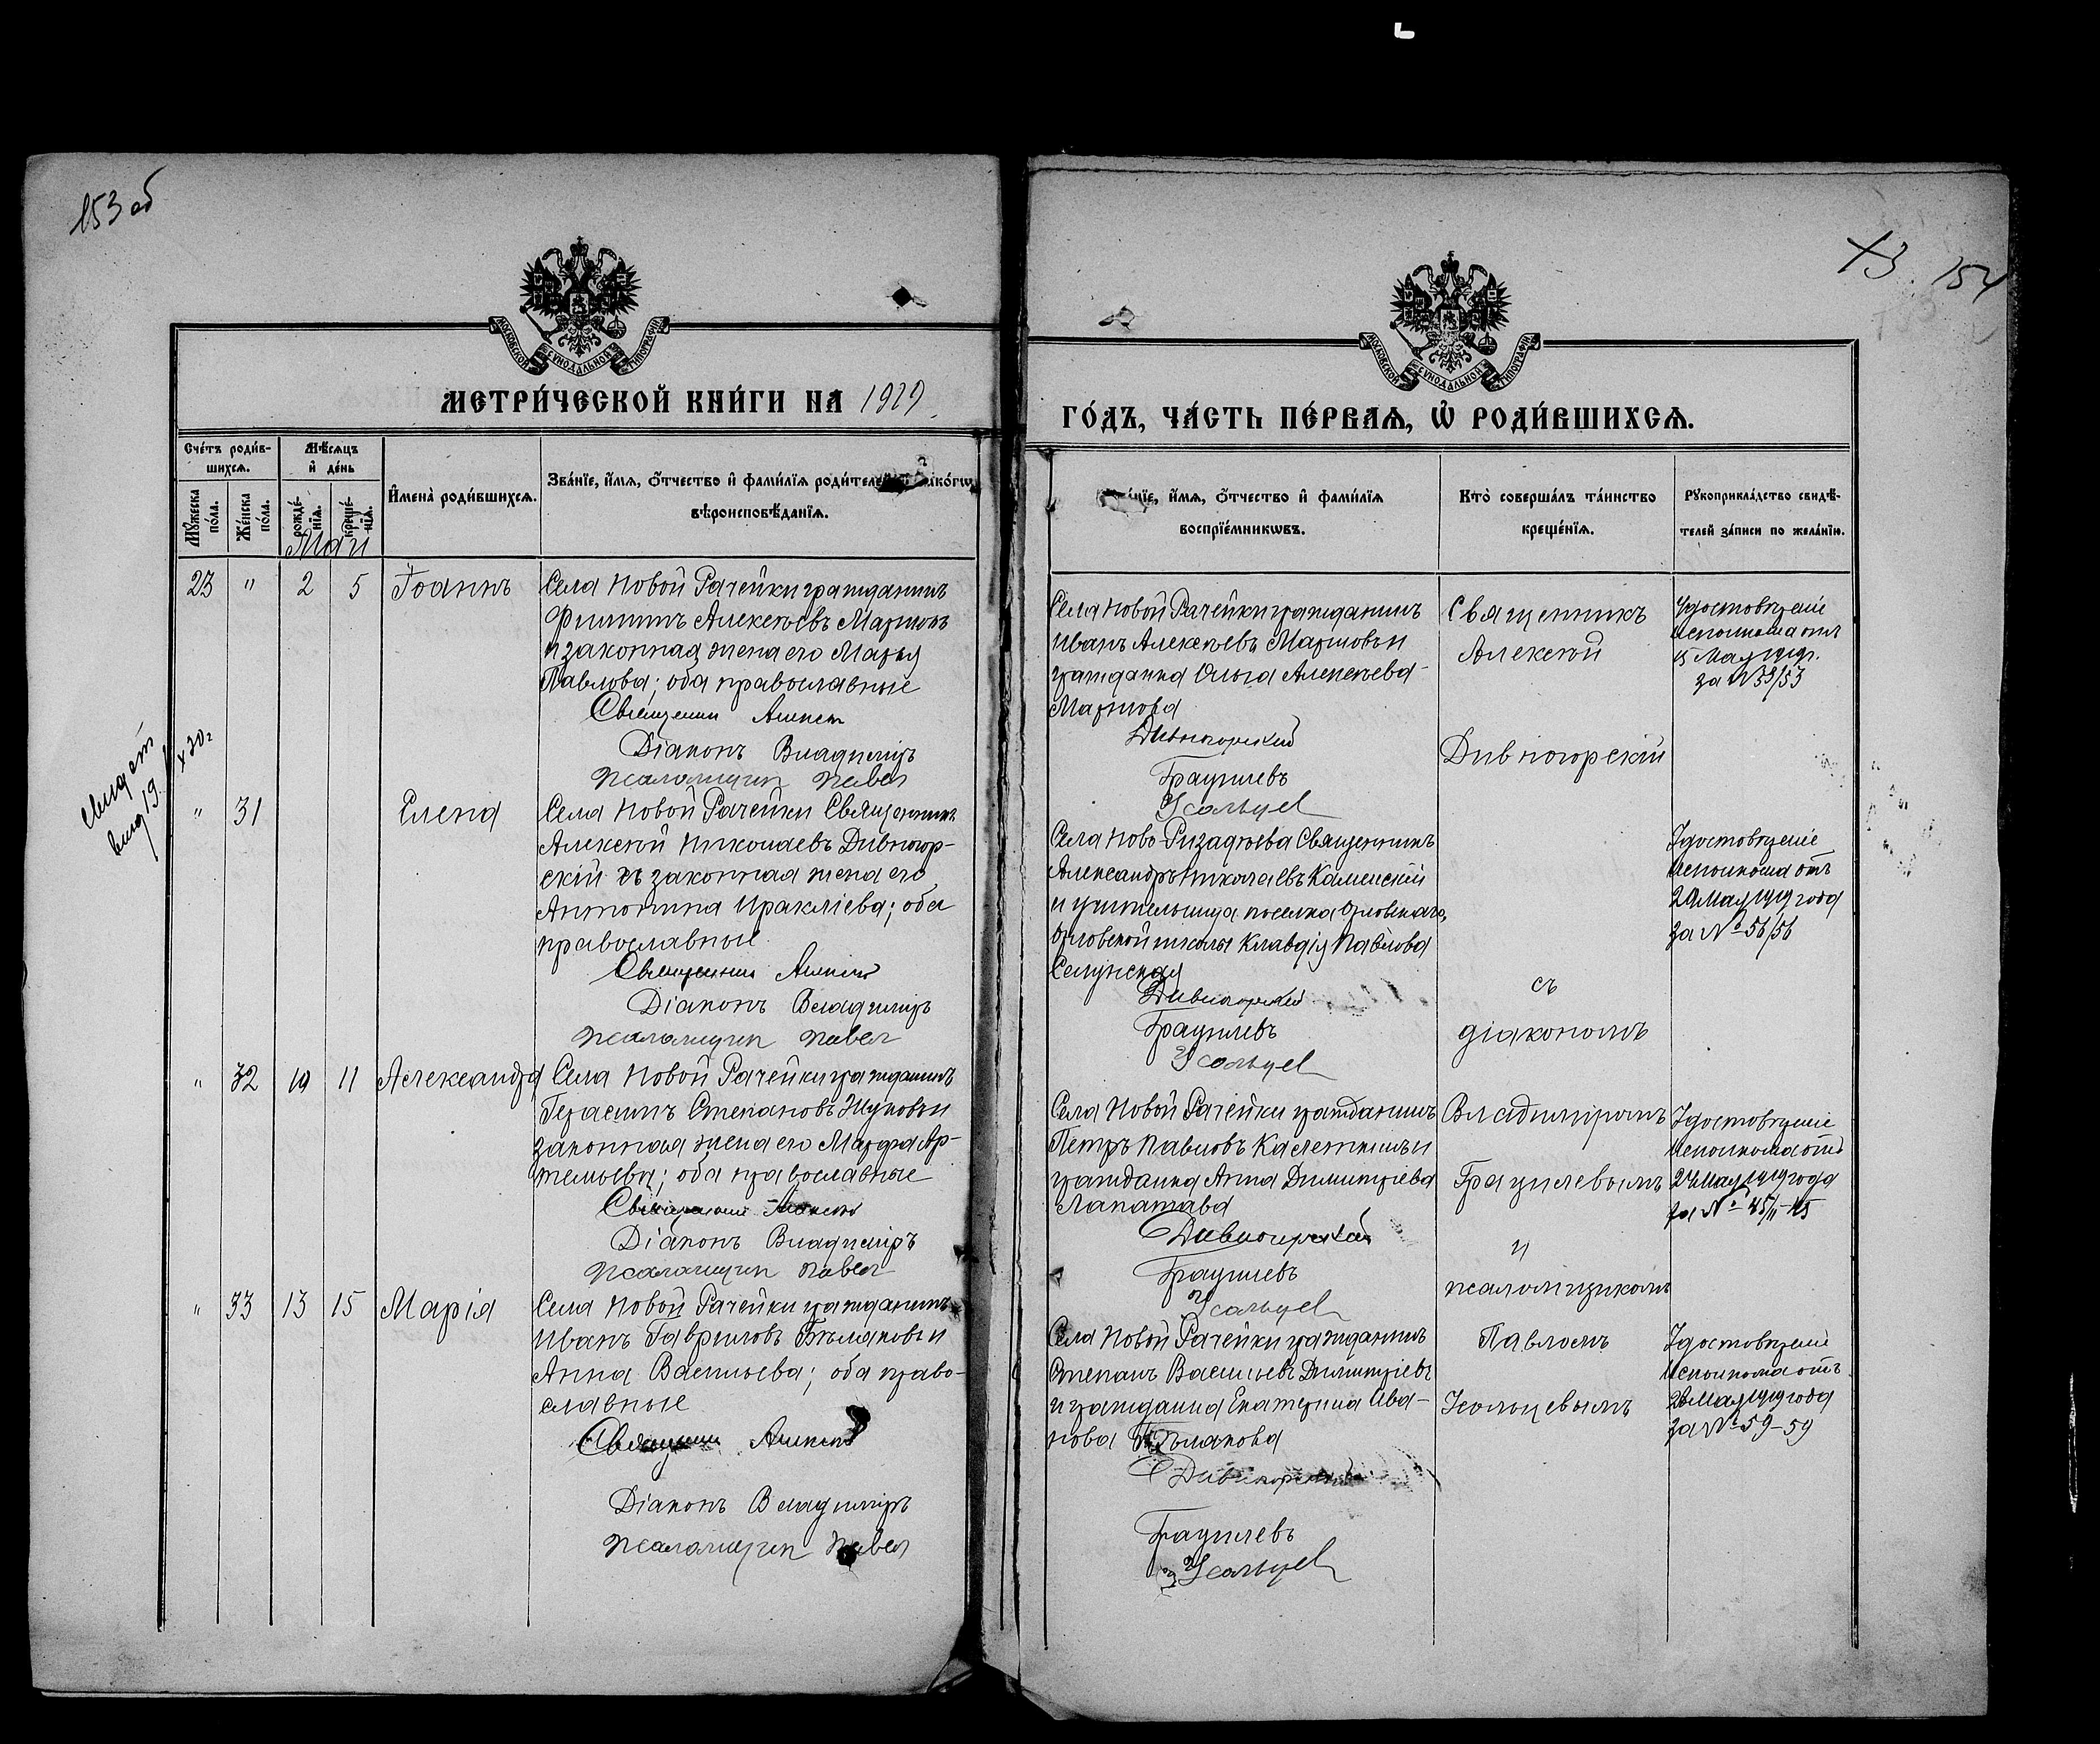 153 об
73. 154
МОСКОВСКОЙ СѴНОДАЛЬНОЙ ТИПОГРАФІИ
МОСКОВСКОЙ СѴНОДАЛЬНОЙ ТИПОГРАФІИ
МЕТРИ́ЧЕСКОЙ КНИ́ГИ НА 1919
ГО́ДЪ, ЧА́СТЬ ПЕ́РВАЯ, Ѡ҆ РОДИ́ВШИХСЯ.
Сче́тъ роди́в-
шихся.
Мѣ́сяцъ
и҆ де́нь
И҆мена̀ роди́вшихся.
Зва́нїе, и҆́мя, ѻ҆́тчество и҆ фами́лїя роди́телей
вѣроисповѣ́данїя.
Мꙋ́жеска
по́ла.
Же́нска
по́ла.
рожде́-
нїя.
креще́-
нїя.
и҆́мя, ѻ҆́тчество и҆ фами́лїя
воспрїе́мникѡвъ.
Кто̀ соверша́лъ та́инство
креще́нїя.
Рꙋкоприкла́дство свидѣ́-
телей за́писи по жела́нїю.
Май
23 " 2 5 Іоаннъ
Села Новой Рачейки гражданинъ
Филиппъ Алексѣевъ
и законная жена его Марья
Павлова; оба православные
Священник Алексій
Діаконъ Владиміръ
Псаломщик Павел
Села Новой Рачейки гражданинъ
Иванъ Алексѣевъ
гражданка Ольга Алексѣева
Дивногорский
Грацилевъ
Усольцев
Священникъ
Алексѣй
Дивногорскій
Удостовѣреніе
Исполкома отъ
15 Мая 1919г.
за № 53/53
" 31 Елена
Села Новой Рачейки Священникъ
Алексѣй Николаевъ Дивногор-
скій и законная жена его
Антонина Ираклiева; оба
православные
Священник Алексій
Діаконъ Владиміръ
Псаломщик Павел
Села Ново Ризадѣева Священникъ
Александръ Николаевъ Каменскій
и учительница поселка Орловскаго,
Орловской школы Клавдія Павлова
Селунская
Дивногорский
Грацилевъ
Усольцев
съ
діакономъ
Удостовѣреніе
Исполкома отъ
20 Мая 1919 года
за № 56/56
" 32 10 11 Александра
Села Новой Рачейки гражданинъ
Герасимъ Степановъ Жуковъ и
законная жена его Марфа Ар-
темьева; оба православные
Священник Алексій
Діаконъ Владиміръ
Псаломщик Павел
Села Новой Рачейки гражданинъ
Петръ Павловъ
гражданка Анна Димитріева
Лапатава
Дивногорский
Грацилевъ
Усольцев
Владиміромъ
Грацилевымъ
и
псаломщикомъ
Удостовѣреніе
Исполкома отъ
24 Мая 1919 года
" 33 13 15 Марія
Села Новой Рачейки гражданинъ
Иванъ Гавриловъ Бѣлаковъ и
Анна Васильева; оба право-
славные
Священник Алексій
Діаконъ Владиміръ
Псаломщик Павел
Села Новой Рачейки гражданинъ
Степанъ Васильевъ Димитріевъ
и гражданка Екатерина Ива-
нова Бѣлакова
Дивногорский
Грацилевъ
Усольцев
Павломъ
Усольцевымъ
Удостовѣреніе
Исполкома отъ
за № 59-59